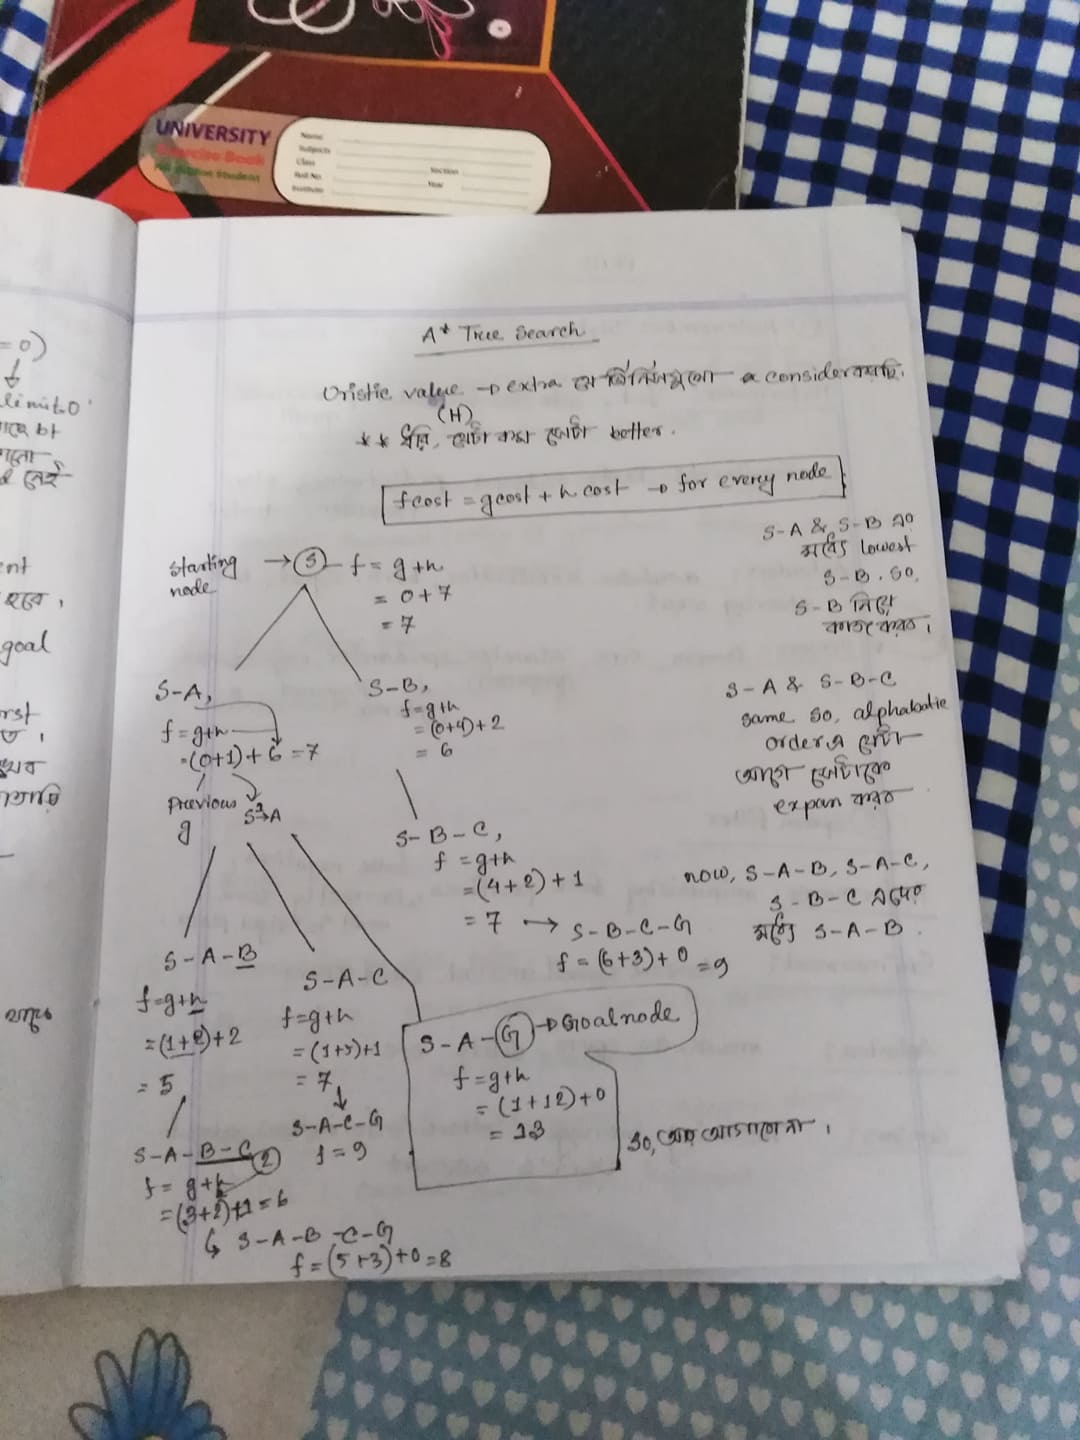 UNIVERSITY
Exercise Book
Name
Subjects
Class
Roll No.
Section
Year
Institute
= 0)
limit=0
goal
A* Tree Search
Uristic value → extra
consider করছি।
(H)
** ধরি, যেটা কম সেটা better.
fcost = gcost + h cost → for every node
S-A & S-B এর
মধ্যে lowest
S-B. so,
S-B নিয়ে
কাজ করব।
starting node → S f = g+h
= 0+7
= 7
S-A,
f=g+h
=(0+1)+6=7
Previous g
S→A
S-B,
f=g+h
= (0+4)+2
= 6
S-A & S-B-C
same so, alphabatic
order এ যেটা
আগে সেটাকে
expan করব
S-B-C,
f = g+h
=(4+2)+1
= 7 → S-B-C-G
f = (6+3)+0 =9
now, S-A-B, S-A-C,
S-B-C এদের
মধ্যে S-A-B.
S-A-B
f=g+h
=(1+2)+2
= 5
S-A-C
f=g+h
= (1+5)+1
= 7
S-A-C-G
f=9
S-A-G → Goal node
f=g+h
= (1+12)+0
= 13
so, আর আগাবো না।
S-A-B-C 2
f= g+h
=(3+2)+1=6
S-A-B-C-G
f=(5+3)+0=8